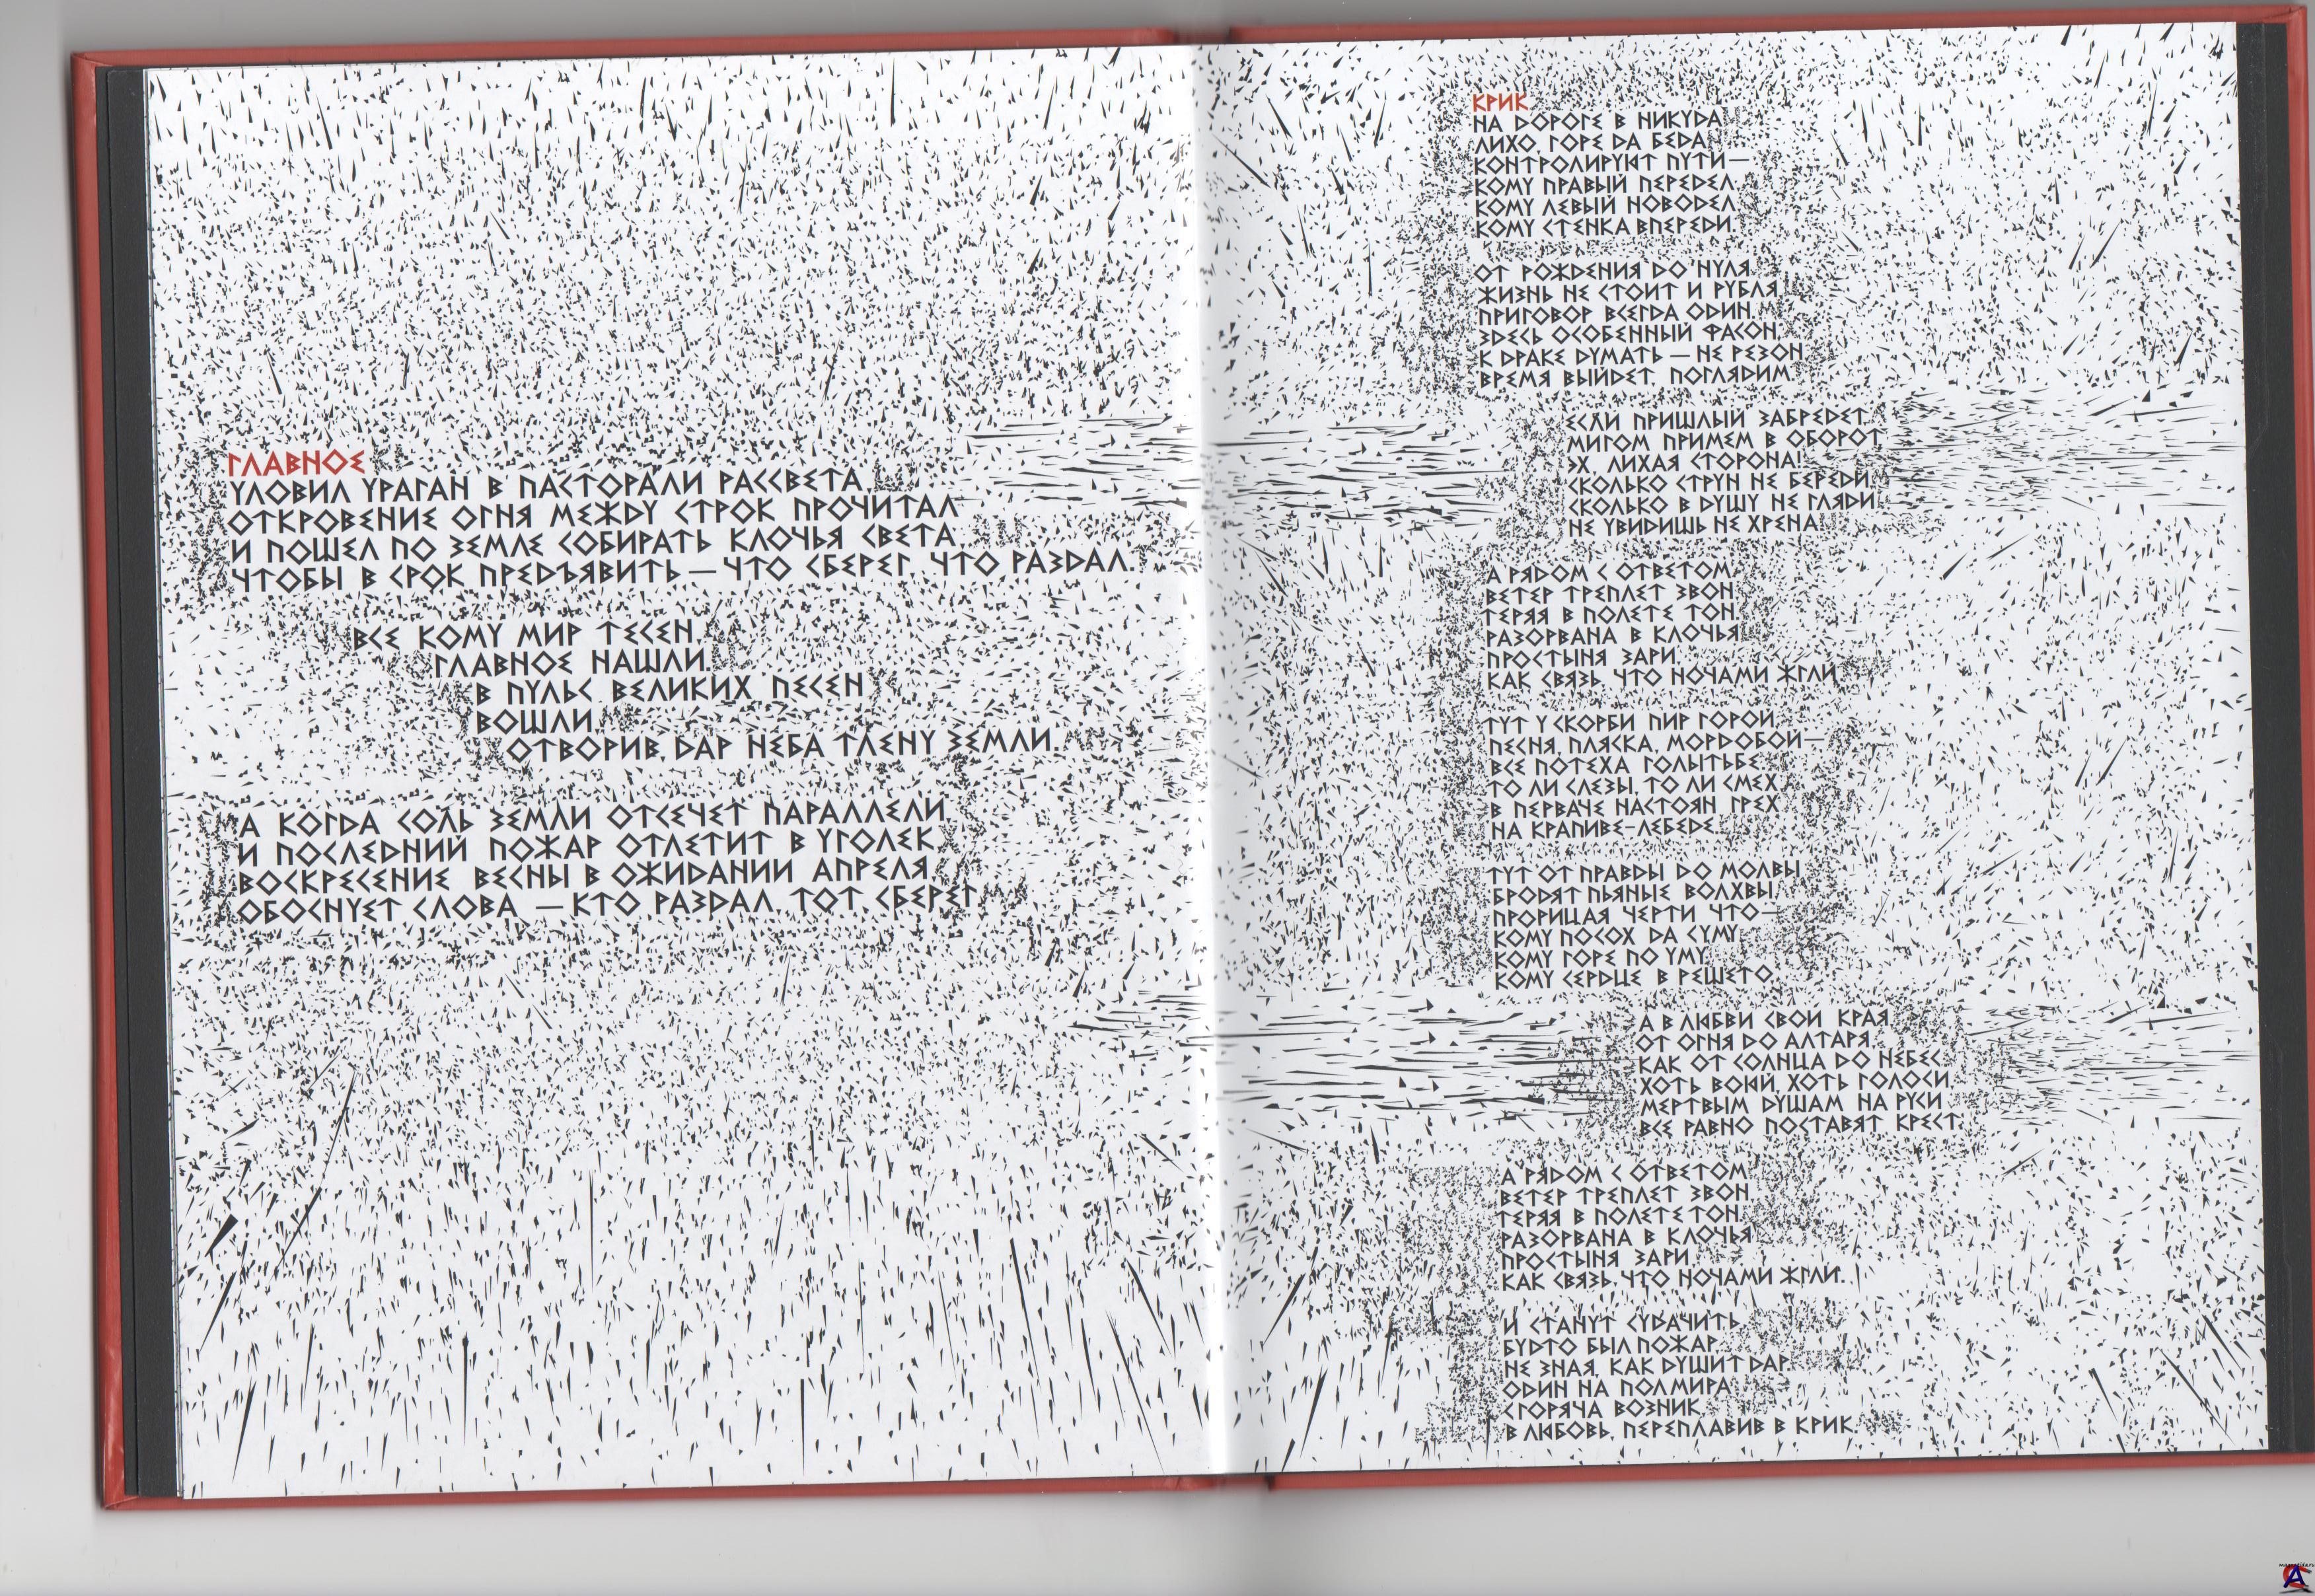 ГЛАВНОЕ
УЛОВИЛ УРАГАН В ПАСТОРАЛИ РАССВЕТА,
ОТКРОВЕНИЕ ОГНЯ МЕЖДУ СТРОК ПРОЧИТАЛ
И ПОШЕЛ ПО ЗЕМЛЕ СОБИРАТЬ КЛОЧЬЯ СВЕТА,
ЧТОБЫ В СРОК ПРЕДЪЯВИТЬ — ЧТО СБЕРЕГ, ЧТО РАЗДАЛ.
ВСЕ КОМУ МИР ТЕСЕН,
ГЛАВНОЕ НАШЛИ.
В ПУЛЬС ВЕЛИКИХ ПЕСЕН
ВОШЛИ,
ОТВОРИВ ДАР НЕБА ТЛЕНУ ЗЕМЛИ.
А КОГДА СОЛЬ ЗЕМЛИ ОТСЕЧЕТ ПАРАЛЛЕЛИ,
И ПОСЛЕДНИЙ ПОЖАР ОТЛЕТИТ В УГОЛЕК,
ВОСКРЕСЕНИЕ ВЕСНЫ В ОЖИДАНИИ АПРЕЛЯ
ОБОСНУЕТ СЛОВА — КТО РАЗДАЛ, ТОТ СБЕРЕГ.
КРИК
НА ДОРОГЕ В НИКУДА
ЛИХО, ГОРЕ ДА БЕДА
КОНТРОЛИРУЮТ ПУТИ —
КОМУ ПРАВЫЙ ПЕРЕДЕЛ,
КОМУ ЛЕВЫЙ НОВОДЕЛ,
КОМУ СТЕНКА ВПЕРЕДИ.
ОТ РОЖДЕНИЯ ДО НУЛЯ
ЖИЗНЬ НЕ СТОИТ И РУБЛЯ,
ПРИГОВОР ВСЕГДА ОДИН.
ЗДЕСЬ ОСОБЕННЫЙ ФАСОН,
К ДРАКЕ ДУМАТЬ — НЕ РЕЗОН,
ВРЕМЯ ВЫЙДЕТ, ПОГЛЯДИМ.
ЕСЛИ ПРИШЛЫЙ ЗАБРЕДЕТ,
МИГОМ ПРИМЕМ В ОБОРОТ.
ЭХ, ЛИХАЯ СТОРОНА!
СКОЛЬКО СТРУН НЕ БЕРЕДИ,
СКОЛЬКО В ДУШУ НЕ ГЛЯДИ,
НЕ УВИДИШЬ НЕ ХРЕНА!
А РЯДОМ С ОТВЕТОМ
ВЕТЕР ТРЕПЛЕТ ЗВОН,
ТЕРЯЯ В ПОЛЕТЕ ТОН.
РАЗОРВАНА В КЛОЧЬЯ
ПРОСТЫНЯ ЗАРИ,
КАК СВЯЗЬ, ЧТО НОЧАМИ ЖГЛИ.
ТУТ У СКОРБИ ПИР ГОРОЙ,
ПЕСНЯ, ПЛЯСКА, МОРДОБОЙ —
ВСЕ ПОТЕХА ГОЛЫТЬБЕ.
ТО ЛИ СЛЕЗЫ, ТО ЛИ СМЕХ,
В ПЕРВАЧЕ НАСТОЯН ГРЕХ
НА КРАПИВЕ-ЛЕБЕДЕ.
ТУТ ОТ ПРАВДЫ ДО МОЛВЫ
БРОДЯТ ПЬЯНЫЕ ВОЛХВЫ,
ПРОРИЦАЯ ЧЕРТИ ЧТО —
КОМУ ПОСОХ ДА СУМУ,
КОМУ ГОРЕ ПО УМУ,
КОМУ СЕРДЦЕ В РЕШЕТО.
А В ЛЮБВИ СВОИ КРАЯ
ОТ ОГНЯ ДО АЛТАРЯ,
КАК ОТ СОЛНЦА ДО НЕБЕС,
ХОТЬ ВОЮЙ, ХОТЬ ГОЛОСИ,
МЕРТВЫМ ДУШАМ НА РУСИ
ВСЕ РАВНО ПОСТАВЯТ КРЕСТ.
А РЯДОМ С ОТВЕТОМ
ВЕТЕР ТРЕПЛЕТ ЗВОН,
ТЕРЯЯ В ПОЛЕТЕ ТОН.
РАЗОРВАНА В КЛОЧЬЯ
ПРОСТЫНЯ ЗАРИ,
КАК СВЯЗЬ, ЧТО НОЧАМИ ЖГЛИ.
И СТАНУТ СУДАЧИТЬ,
БУДТО БЫЛ ПОЖАР,
НЕ ЗНАЯ, КАК ДУШИТ ДАР.
ОДИН НА ПОЛМИРА
СГОРЯЧА ВОЗНИК,
В ЛЮБОВЬ, ПЕРЕПЛАВИВ В КРИК.